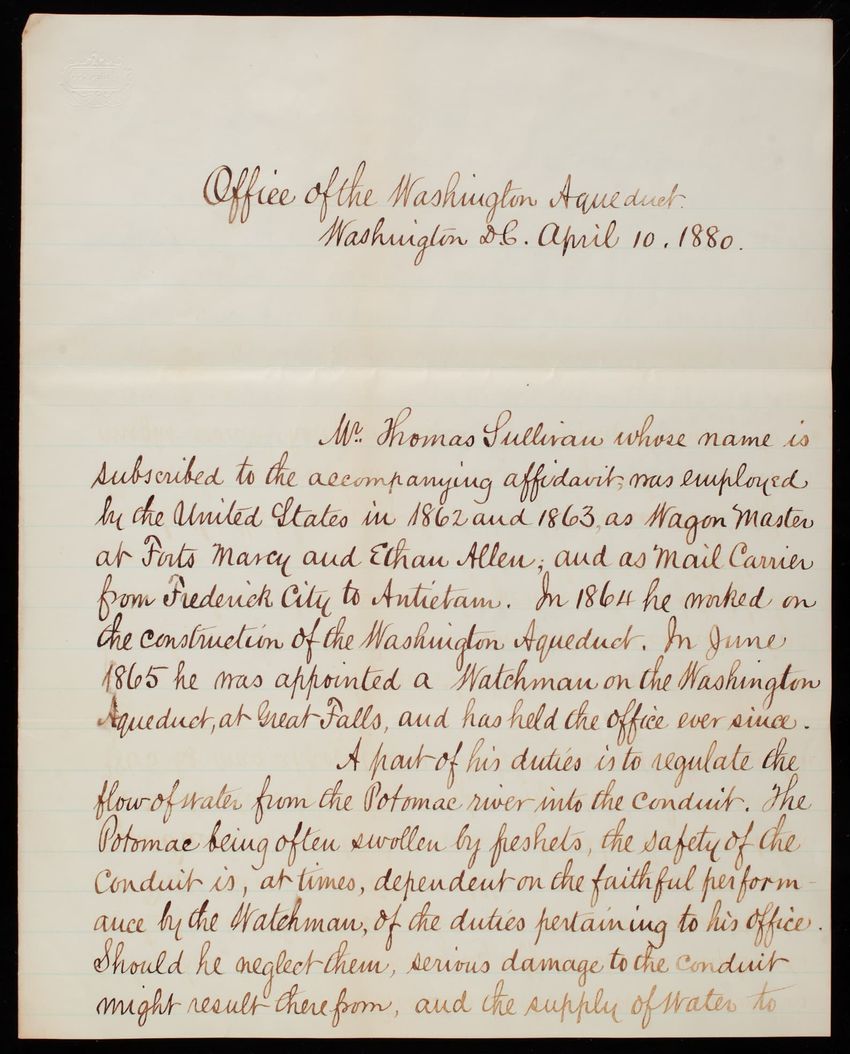 Office of the Washington Aqueduct.
Washington D.C. April 10. 1880.
Mr. Thomas Sullivan whose name is
subscribed to the accompanying affidavit, was employed
by the United States in 1862 and 1863, as Wagon Master
at Forts Marcy and Ethan Allen; and as Mail Carrier
from Frederick City to Antietam. In 1864 he worked on
the construction of the Washington Aqueduct. In June
1865 he was appointed a Watchman on the Washington
Aqueduct, at Great Falls, and has held the office ever since.
A part of his duties is to regulate the
flow of water from the Potomac river into the conduit. The
Potomac being often swollen by freshets, the safety of the
Conduit is, at times, dependent on the faithful perform-
ance by the Watchman, of the duties pertaining to his office.
Should he neglect them, serious damage to the conduit
might result therefrom, and the supply of water to